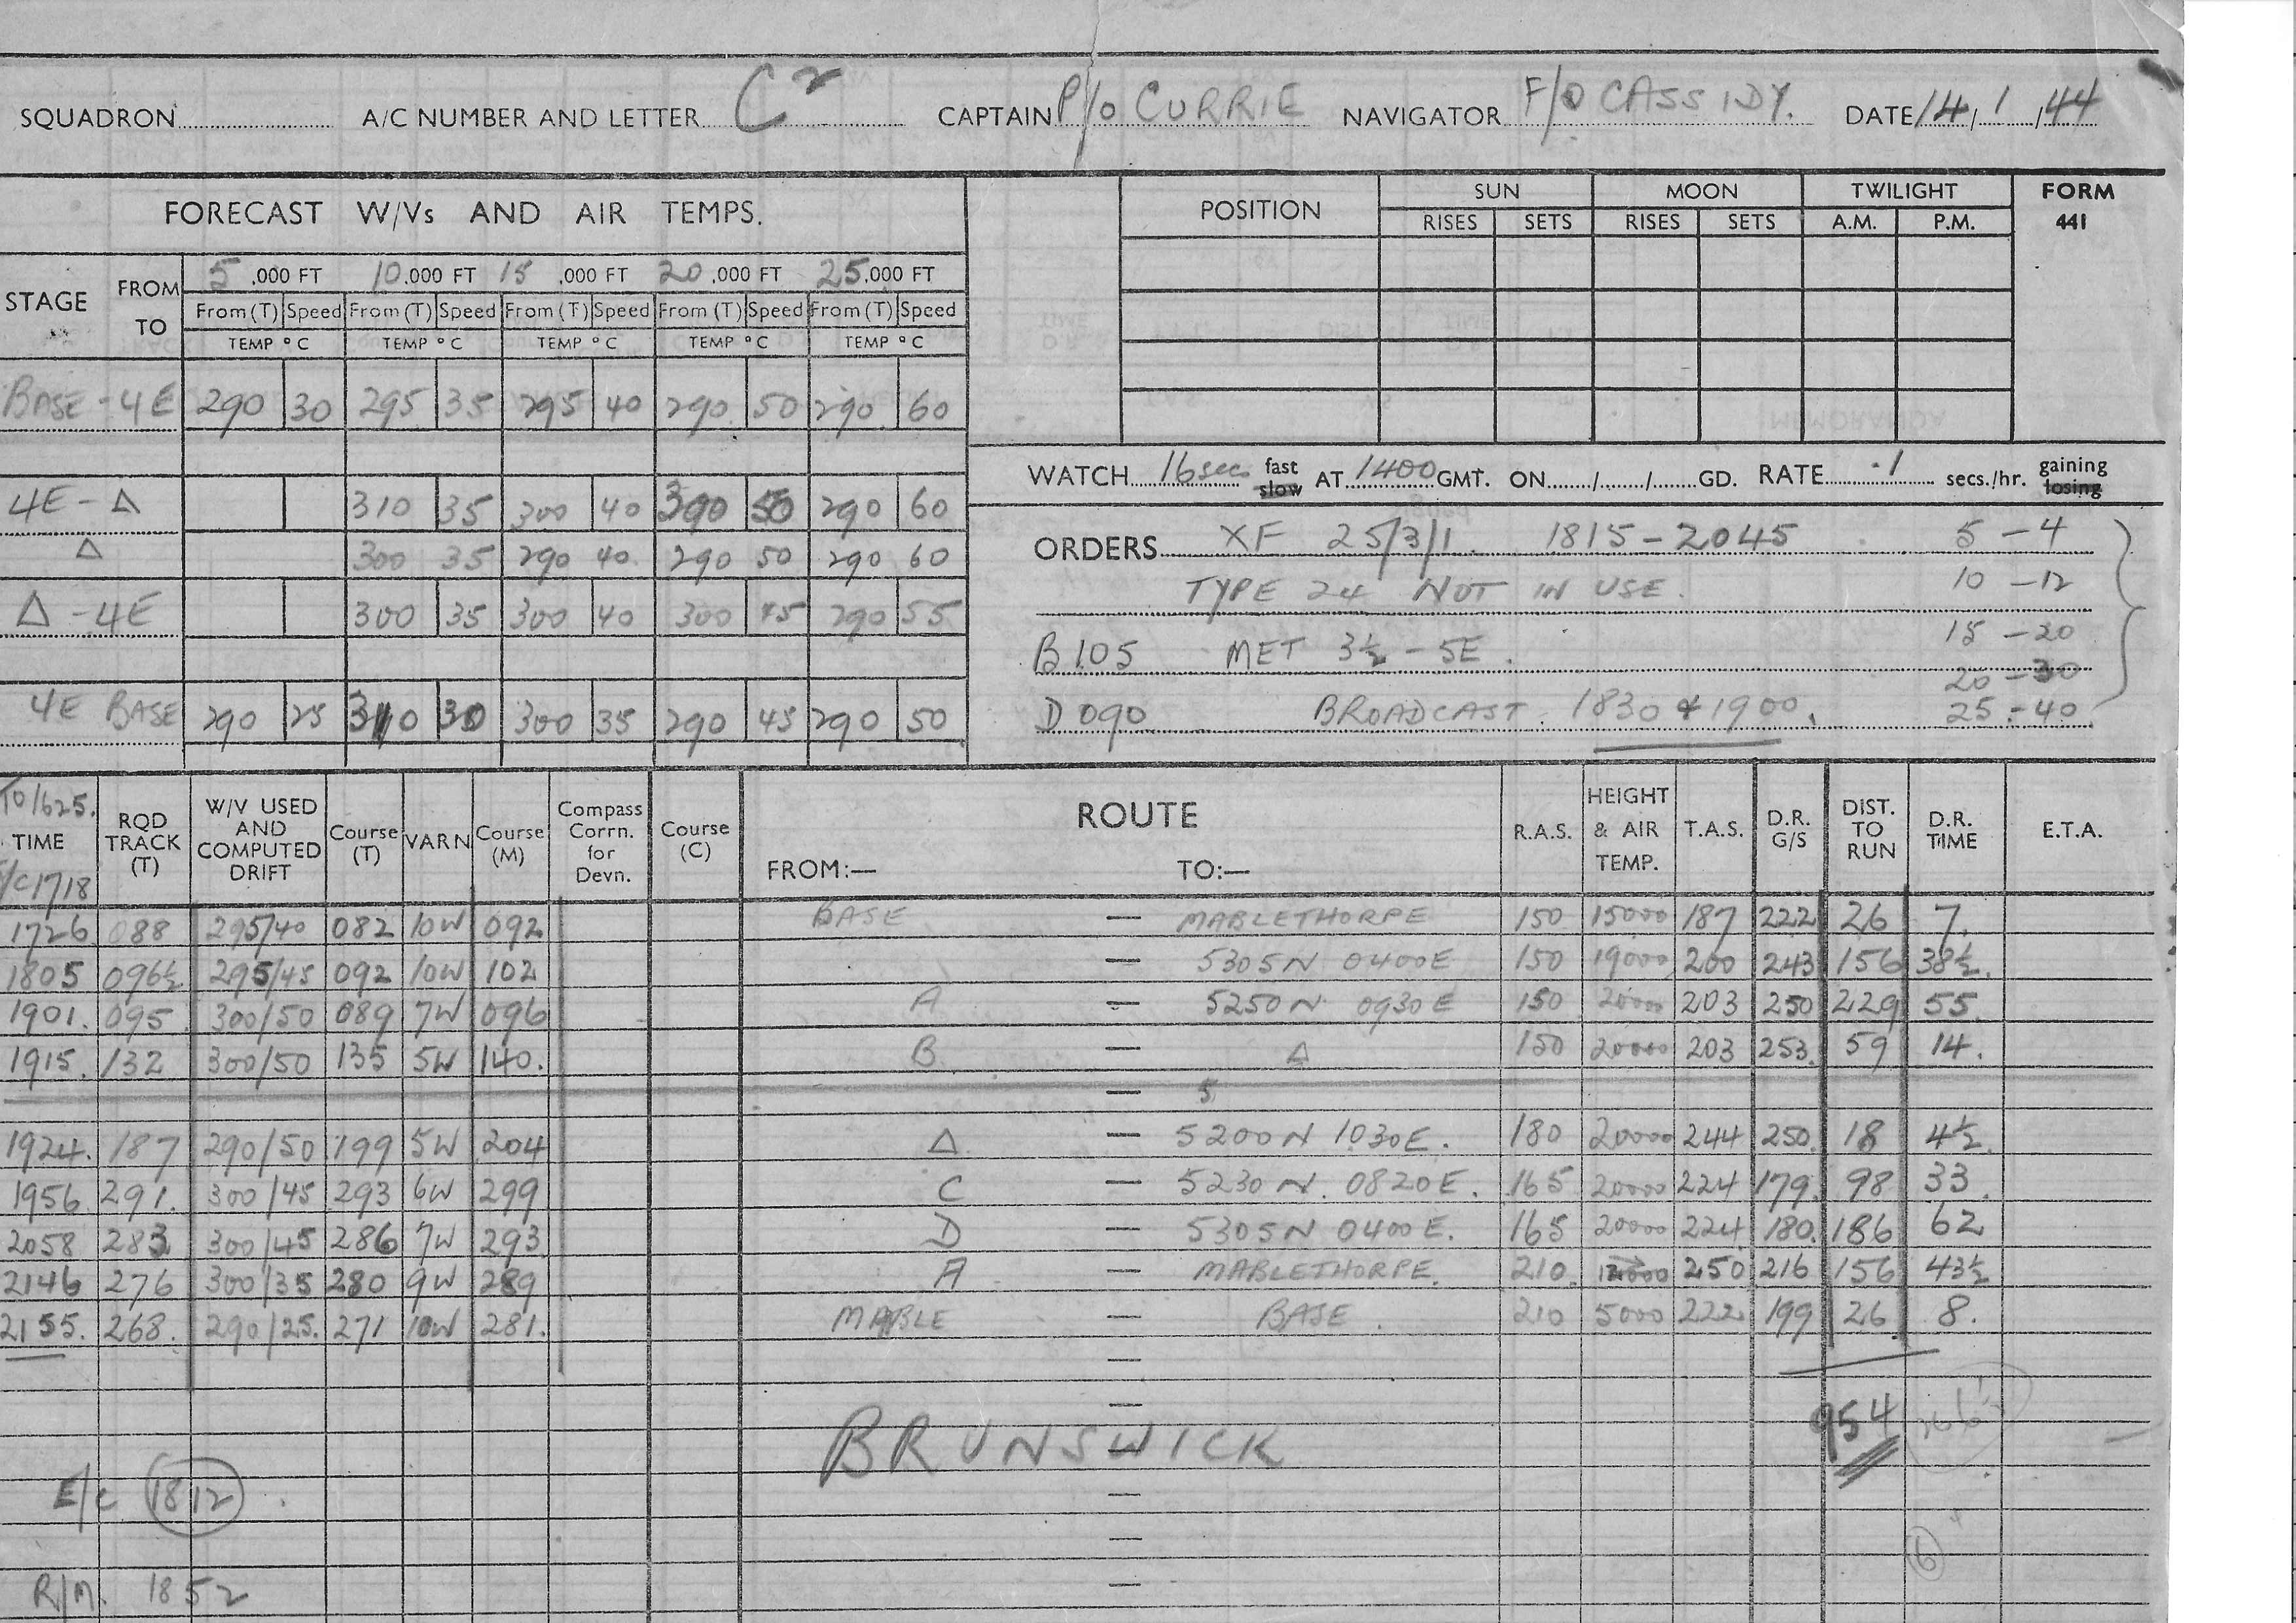 SQUADRON A/C NUMBER AND LETTER C2 CAPTAIN P/O CURRIE NAVIGATOR F/O CASSIDY. DATE 14/1/44
FORECAST W/Vs AND AIR TEMPS.
STAGE FROM TO
5,000 FT 10,000 FT 15,000 FT 20,000 FT 25,000 FT
From (T) Speed From (T) Speed From (T) Speed From (T) Speed From (T) Speed
TEMP °C TEMP °C TEMP °C TEMP °C TEMP °C
BASE - 4E 290 30 295 35 295 40 290 50 290 60
4E - Δ 310 35 300 40 50 290 60
Δ 300 35 290 40 290 50 290 60
Δ - 4E 300 35 300 40 300 45 290 55
4E BASE 290 25 310 30 300 35 290 45 290 50
POSITION SUN MOON TWILIGHT FORM
RISES SETS RISES SETS A.M. P.M. 441
WATCH 16 sec fast slow AT 1400 GMT. ON / / GD. RATE .1 secs./hr. gaining losing
ORDERS XF 25/3/1 1815 - 2045 5 - 4
TYPE 24 NOT IN USE. 10 - 12
15 - 20
B 105 MET 3½ - 5E.
20 - 30
D 090 BROADCAST. 1830 & 1900. 25 - 40
TO 1625.
TIME RQD TRACK (T) W/V USED AND COMPUTED DRIFT Course (T) VARN Course (M) Compass Corrn. for Devn. Course (C) ROUTE FROM:— TO:— R.A.S. HEIGHT & AIR TEMP. T.A.S. D.R. G/S DIST. TO RUN D.R. TIME E.T.A.
S/C 1718
1726 088 295/40 082 10W 092 BASE — MABLETHORPE 150 15000 187 222 26 7.
1805 096½ 295/45 092 10W 102 — 5305N 0400E 150 19000 200 243 156 38½.
1901. 095 300/50 089 7W 096 A — 5250N 0930E 150 20000 203 250 229 55
1915. 132 300/50 135 5W 140. B — Δ 150 20000 203 253. 59 14.
— 5
1924. 187 290/50 199 5W 204 Δ — 5200N 1030E. 180 20000 244 250 18 4½
1956 291. 300/45 293 6W 299 C — 5230N. 0820E. 165 20000 224 179. 98 33.
2058 283 300/45 286 7W 293 D — 5305N 0400E. 165 20000 224 180. 186 62
2146 276 300/35 280 9W 289 A — MABLETHORPE. 210. 250 216 156 43½
2155. 268. 290/25. 271 10W 281. MABLE — BASE. 210 5000 222 199 26 8.
—
—
954
BRUNSWICK
E/C 1812.
—
—
6
R/M. 1852
—